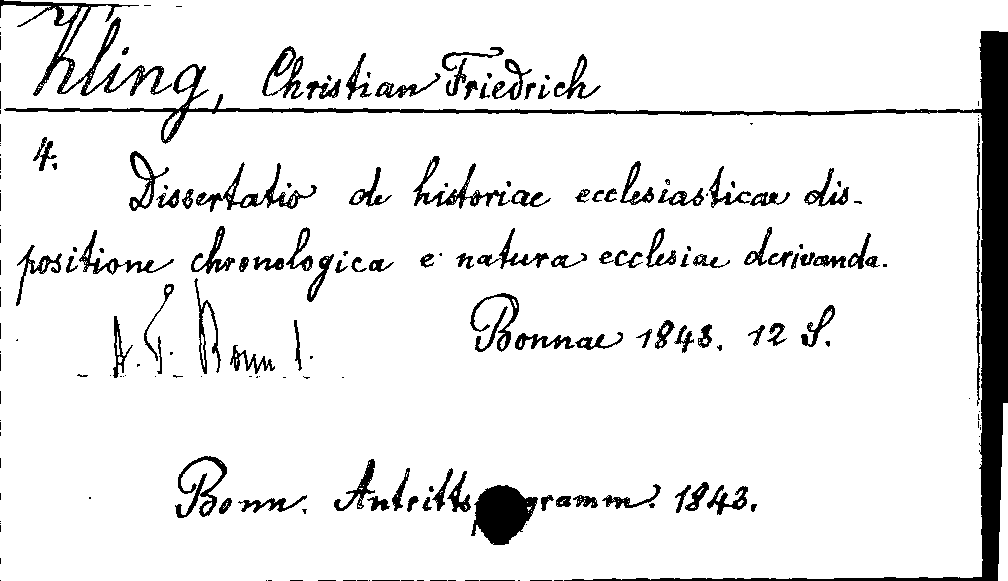 Kling, Christian Friedrich
4.
Dissertatio de historiae ecclesiasticae dis-
positione chronologica e natura ecclesiae derivanda.
Bonnae 1843. 12 S.
Bonn 1.
Bonn. Antrittsprogramm. 1843.